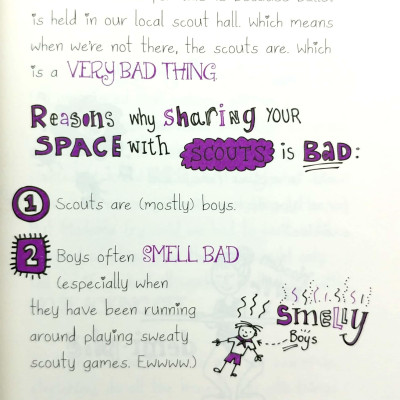 is held in our local scout hall. Which means
when we're not there, the scouts are. Which
is a VERY BAD THING.
Reasons why sharing YOUR
SPACE with SCOUTS is BAD:
1 Scouts are (mostly) boys.
2 Boys often SMELL BAD
(especially when
they have been running
around playing sweaty
scouty games. Ewwww.)
Smelly
Boys